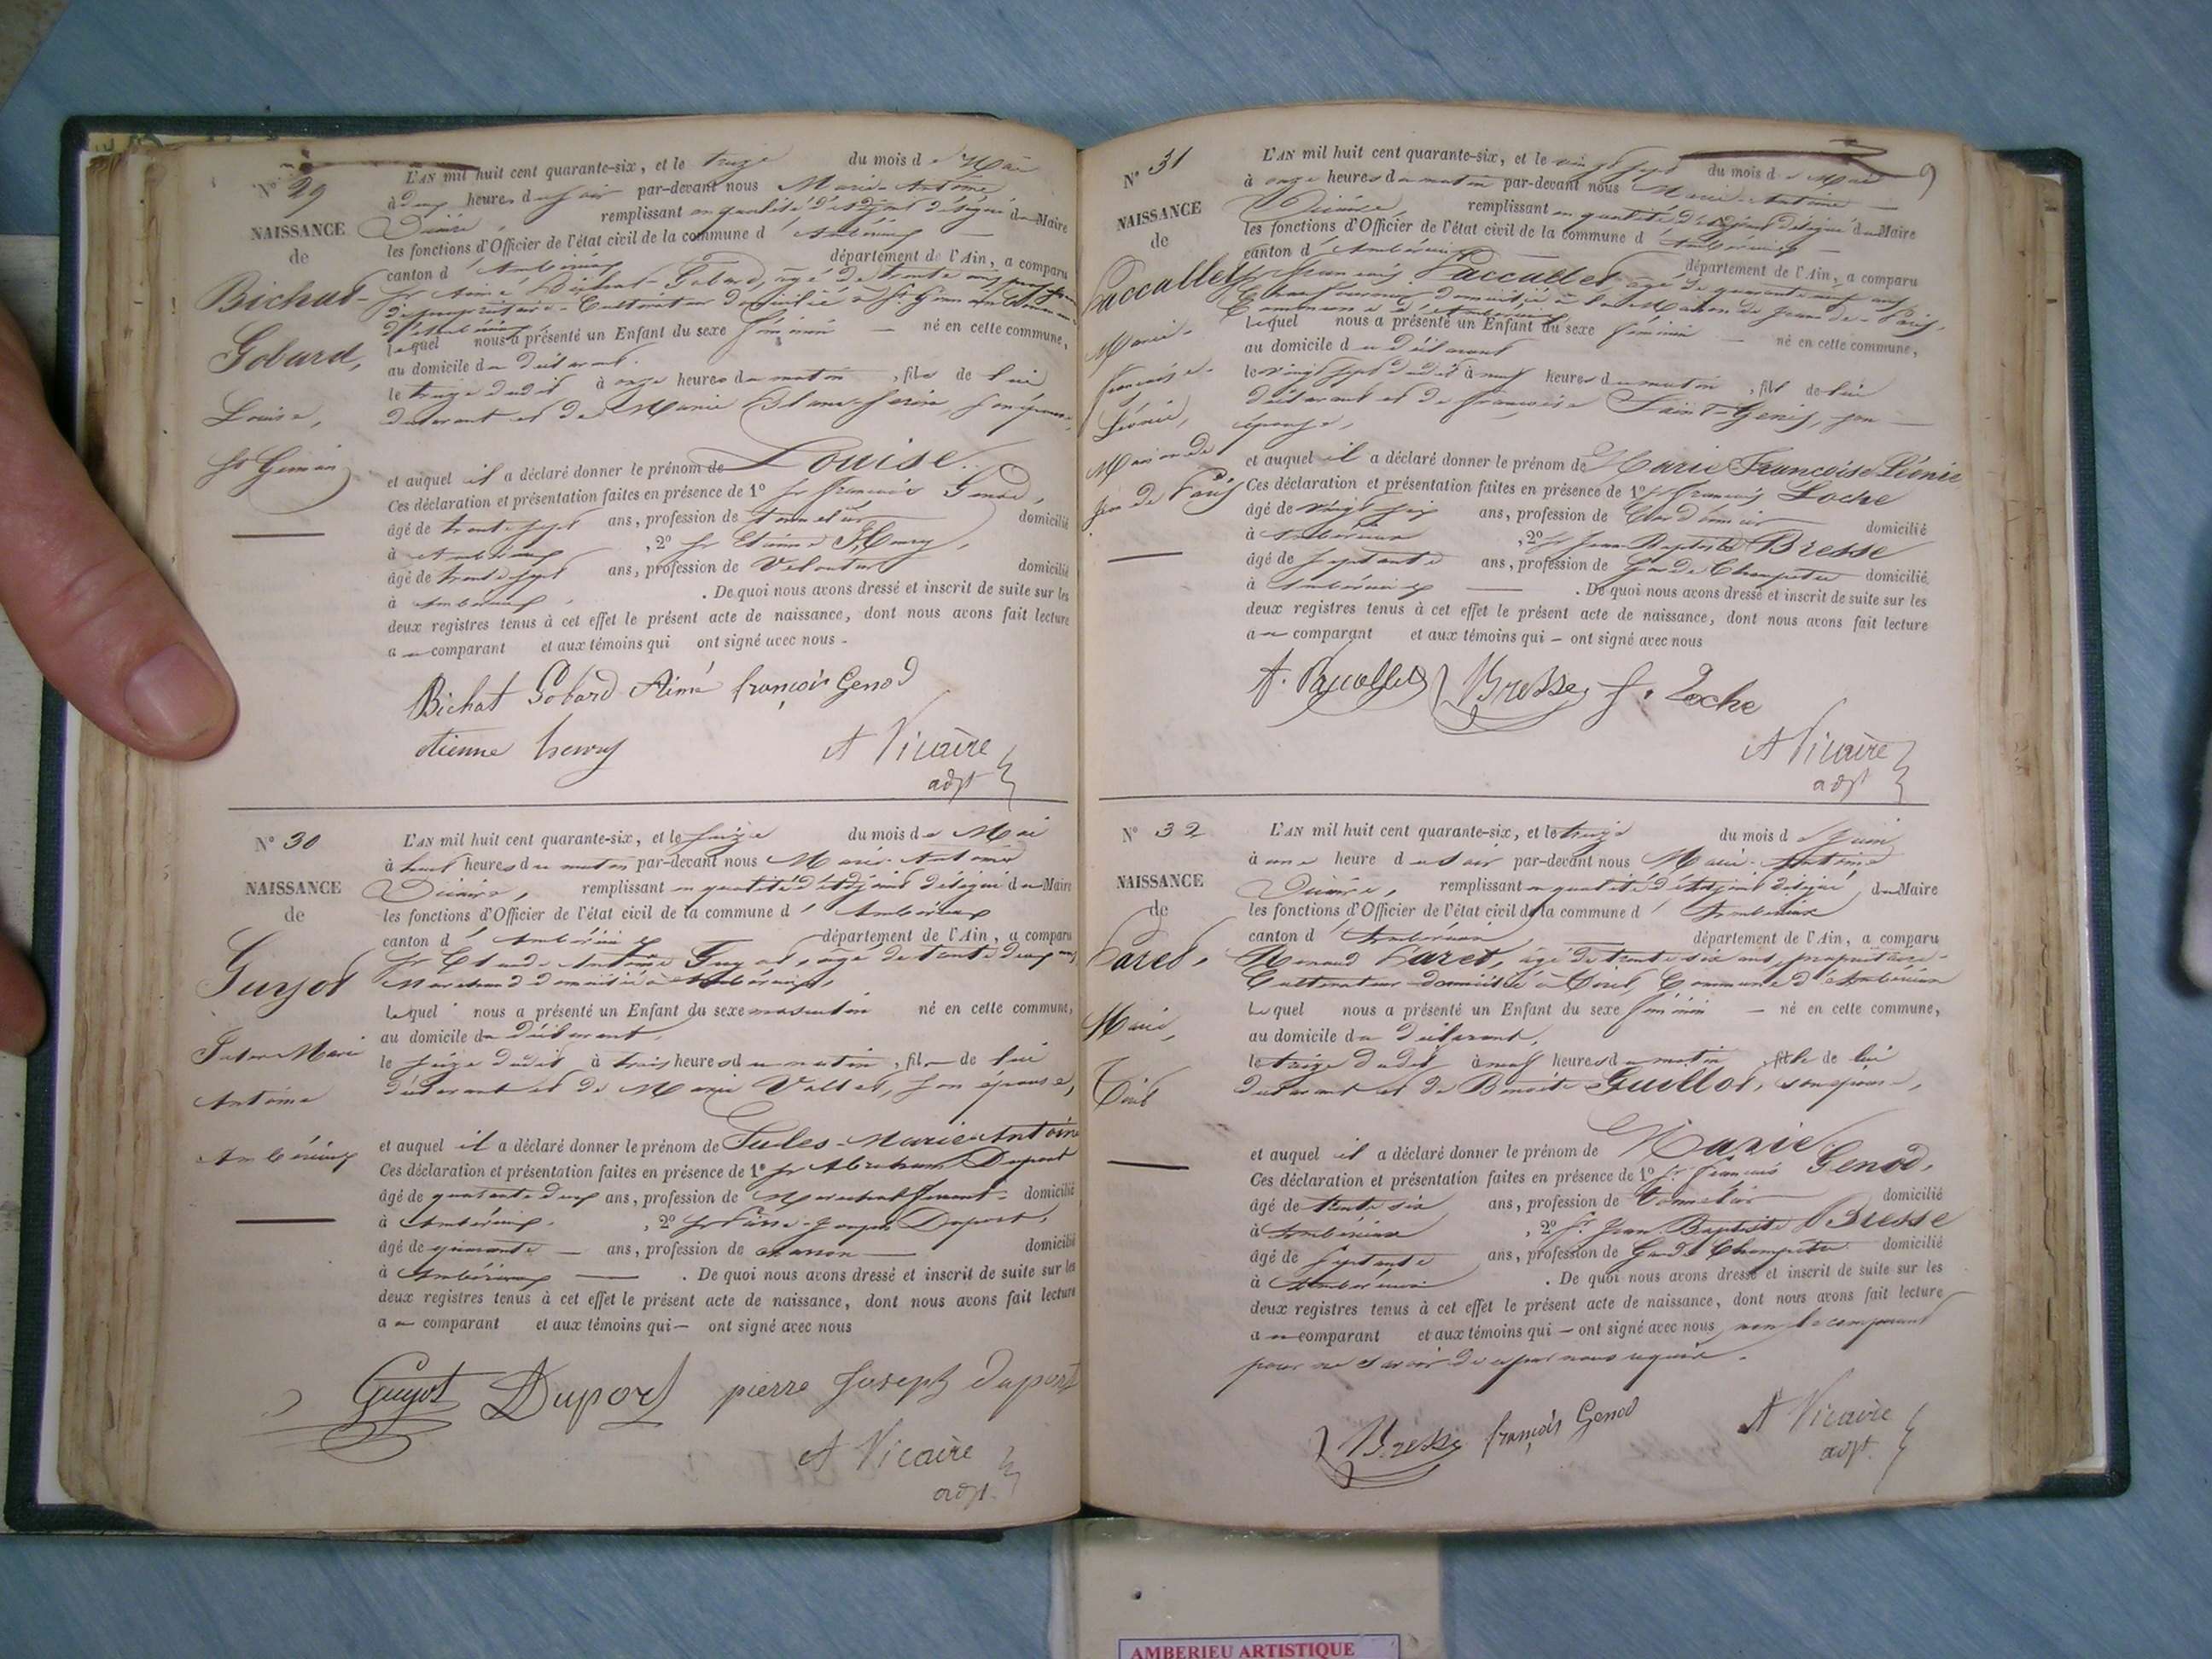 N° 29
NAISSANCE
de
Bichat-
Gobard,
Louise,
St Germain
L'AN mil huit cent quarante-six, et le treize du mois de Mai
à deux heures du soir par-devant nous Marie-Antoine
Vicaire remplissant en qualité d'adjoint délégué du Maire
les fonctions d'Officier de l'état civil de la commune d'Ambérieux
canton d'Ambérieux département de l'Ain, a comparu
Sr Aimé Bichat-Gobard, âgé de trente ans, profession
de propriétaire-Cultivateur domicilié à St Germain Commune
d'Ambérieux
lequel nous a présenté un Enfant du sexe féminin — né en cette commune,
au domicile du déclarant.
le treize dudit à onze heures du matin, fille de lui
déclarant et de Marie son épouse,
et auquel il a déclaré donner le prénom de Louise.
Ces déclaration et présentation faites en présence de 1° Sr françois Genod,
âgé de trente sept ans, profession de tonnelier domicilié
à Ambérieux, 2° Sr Etienne Henry,
âgé de trente sept ans, profession de domicilié
à Ambérieux. De quoi nous avons dressé et inscrit de suite sur les
deux registres tenus à cet effet le présent acte de naissance, dont nous avons fait lecture
au comparant et aux témoins qui ont signé avec nous -
Bichat Gobard Aimé françois Genod
etienne henry A Vicaire
adjt
N° 30
NAISSANCE
de
Guyot
Jules-Marie
Antoine
Ambérieux
L'AN mil huit cent quarante-six, et le seize du mois de Mai
à huit heures du matin par-devant nous Marie-Antoine
Vicaire, remplissant en qualité d'adjoint délégué du Maire
les fonctions d'Officier de l'état civil de la commune d'Ambérieux
canton d'Ambérieux département de l'Ain, a comparu
Sr Claude Antoine Guyot, âgé de trente deux ans,
Marchand domicilié à Ambérieux,
lequel nous a présenté un Enfant du sexe masculin né en cette commune,
au domicile du déclarant,
le seize dudit à trois heures du matin, fils de lui
déclarant et de Marie Vallet, son épouse,
et auquel il a déclaré donner le prénom de Jules-Marie-Antoine
Ces déclaration et présentation faites en présence de 1° Sr Abraham Duport
âgé de quarante deux ans, profession de Maréchal ferrant domicilié
à Ambérieux, 2° Sr Pierre-Joseph Duport,
âgé de quarante — ans, profession de domicilié
à Ambérieux — . De quoi nous avons dressé et inscrit de suite sur les
deux registres tenus à cet effet le présent acte de naissance, dont nous avons fait lecture
au comparant et aux témoins qui — ont signé avec nous
Guyot Duport pierre Joseph duport
A Vicaire
adjt.
9
N° 31
NAISSANCE
de
Paccallet
Marie-
françoise-
Léonie,
Maison de
Jean de Paris
L'AN mil huit cent quarante-six, et le vingt sept du mois de Mai
à onze heures du matin par-devant nous Marie-Antoine —
Vicaire, remplissant en qualité d'adjoint délégué du Maire
les fonctions d'Officier de l'état civil de la commune d'Ambérieux —
canton d'Ambérieux département de l'Ain, a comparu
Sr françois Paccallet âgé de quarante neuf ans
Chaufournier domicilié à la Maison de Jean de-Paris,
Commune d'Ambérieux
lequel nous a présenté un Enfant du sexe féminin — né en cette commune,
au domicile du déclarant
le vingt sept dudit à neuf heures du matin, fille de lui
déclarant et de françoise Saint-Genis, son —
épouse,
et auquel il a déclaré donner le prénom de Marie Françoise Léonie
Ces déclaration et présentation faites en présence de 1° Sr françois Loche
âgé de vingt six ans, profession de Cordonnier domicilié
à Ambérieux, 2° Sr Jean Baptiste Bresse
âgé de septante ans, profession de Garde Champêtre domicilié
à Ambérieux — . De quoi nous avons dressé et inscrit de suite sur les
deux registres tenus à cet effet le présent acte de naissance, dont nous avons fait lecture
au comparant et aux témoins qui — ont signé avec nous
Bresse f. Loche
A Vicaire
adjt
N° 32
NAISSANCE
de
Caret,
Marie,
Tiret
L'AN mil huit cent quarante-six, et le treize du mois de Juin
à une heure du soir par-devant nous Marie-Antoine
Vicaire, remplissant en qualité d'adjoint délégué du Maire
les fonctions d'Officier de l'état civil de la commune d'Ambérieux
canton d'Ambérieux département de l'Ain, a comparu
Caret, âgé de trente six ans, propriétaire-
Cultivateur domicilié à Tiret, Commune d'Ambérieux
lequel nous a présenté un Enfant du sexe féminin — né en cette commune,
au domicile du déclarant,
le treize dudit à neuf heures du matin, fille de lui
déclarant et de Benoite Guillot, son épouse,
et auquel il a déclaré donner le prénom de Marie
Ces déclaration et présentation faites en présence de 1° Sr françois Genod,
âgé de trente six ans, profession de tonnelier domicilié
à Ambérieux, 2° Sr Jean Baptiste Bresse
âgé de septante ans, profession de Garde Champêtre domicilié
à Ambérieux. De quoi nous avons dressé et inscrit de suite sur les
deux registres tenus à cet effet le présent acte de naissance, dont nous avons fait lecture
au comparant et aux témoins qui — ont signé avec nous, non le comparant
pour ne savoir de ce par nous requis.
Bresse françois Genod A Vicaire
adjt.
AMBERIEU ARTISTIQUE